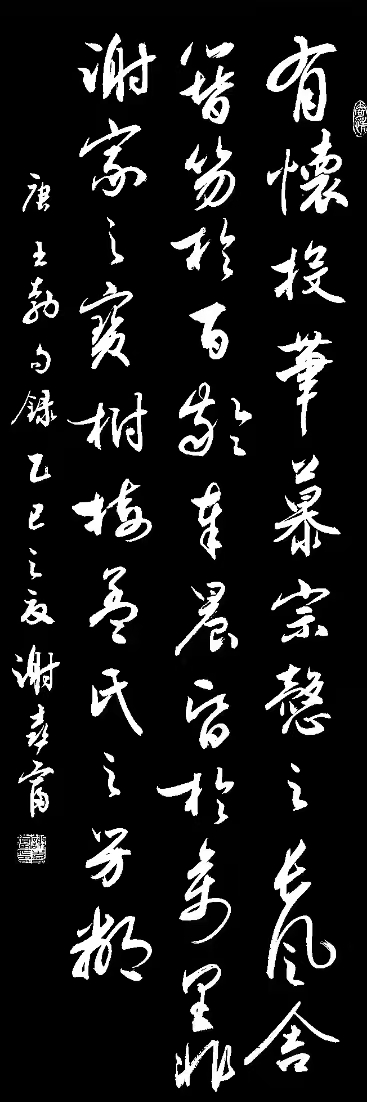 有懷投筆慕宗慤之長風舍
簪笏於百齡奉晨昏於萬里非
謝家之寶樹接孟氏之芳鄰
唐王勃句錄乙巳之夏謝壽甯